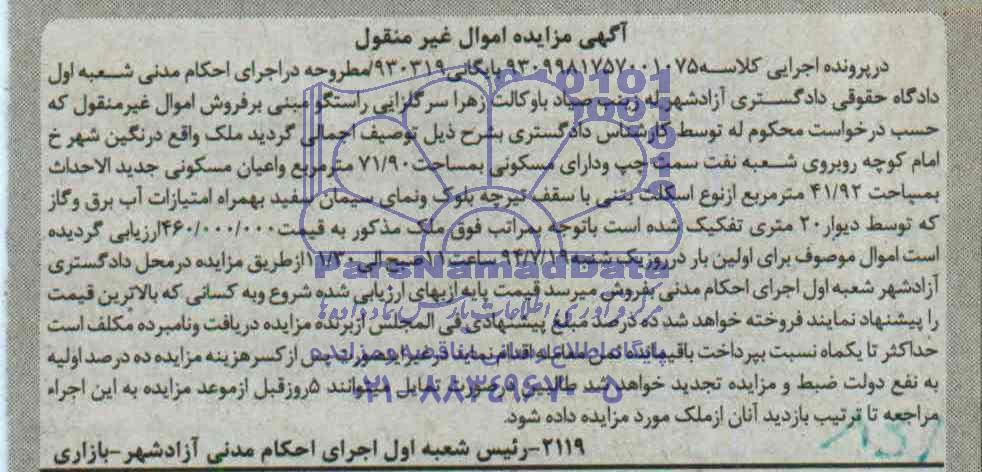 آگهی مزایده اموال غیر منقول
درپرونده اجرایی کلاسه۹۳۰۹۹۸۱۷۵۷۰۰۱۰۷۵بایگانی۹۳۰۳۱۹/مطروحه دراجرای احکام مدنی شعبه اول
دادگاه حقوقی دادگستری آزادشهرله زینب صیاد باوکالت زهرا سرگلزایی راستگو مبنی برفروش اموال غیرمنقول که
حسب درخواست محکوم له توسط کارشناس دادگستری بشرح ذیل توصیف اجمالی گردید ملک واقع درنگین شهر خ
امام کوچه روبروی شعبه نفت سمت چپ ودارای مسکونی بمساحت ۷۱/۹۰ مترمربع واعیان مسکونی جدید الاحداث
بمساحت ۴۱/۹۲ مترمربع ازنوع اسکلت بتنی با سقف تیرچه بلوک ونمای سیمان سفید بهمراه امتیازات آب برق وگاز
که توسط دیوار۲۰ متری تفکیک شده است باتوجه بمراتب فوق ملک مذکور به قیمت۴۶۰/۰۰۰/۰۰۰ارزیابی گردیده
است اموال موصوف برای اولین بار درروزیک شنبه۹۴/۷/۱۹ ساعت۱۱صبح الی۱۱/۳۰ازطریق مزایده درمحل دادگستری
آزادشهر شعبه اول اجرای احکام مدنی بفروش میرسد قیمت پایه ازبهای ارزیابی شده شروع وبه کسانی که بالاترین قیمت
را پیشنهاد نمایند فروخته خواهد شد ده درصد مبلغ پیشنهادی فی المجلس ازبرنده مزایده دریافت ونامبرده مکلف است
حداکثر تا یکماه نسبت بپرداخت باقیمانده ثمن معامله اقدام نماید درغیراینصورت پس ازکسرهزینه مزایده ده درصد اولیه
به نفع دولت ضبط و مزایده تجدید خواهد شد طالبین درصورت تمایل میتوانند ۵روزقبل ازموعد مزایده به این اجراء
مراجعه تا ترتیب بازدید آنان ازملک مورد مزایده داده شود.
۲۱۱۹-رئیس شعبه اول اجرای احکام مدنی آزادشهر-بازاری
ParsNamadData
مرکز فرآوری اطلاعات پارس نماد داده ها
پایگاه اطلاع رسانی مناقصه و مزایده
۰۲۱-۸۸۳۴۹۶۷۰-۵